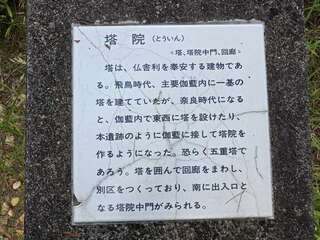 塔院（とういん）
〈塔、塔院中門、回廊〉
塔は、仏舎利を奉安する建物であ
る。飛鳥時代、主要伽藍内に一基の
塔を建てていたが、奈良時代になる
と、伽藍内で東西に塔を設けたり、
本遺跡のように伽藍に接して塔院を
作るようになった。恐らく五重塔で
あろう。塔を囲んで回廊をまわし、
別区をつくっており、南に出入口と
なる塔院中門がみられる。